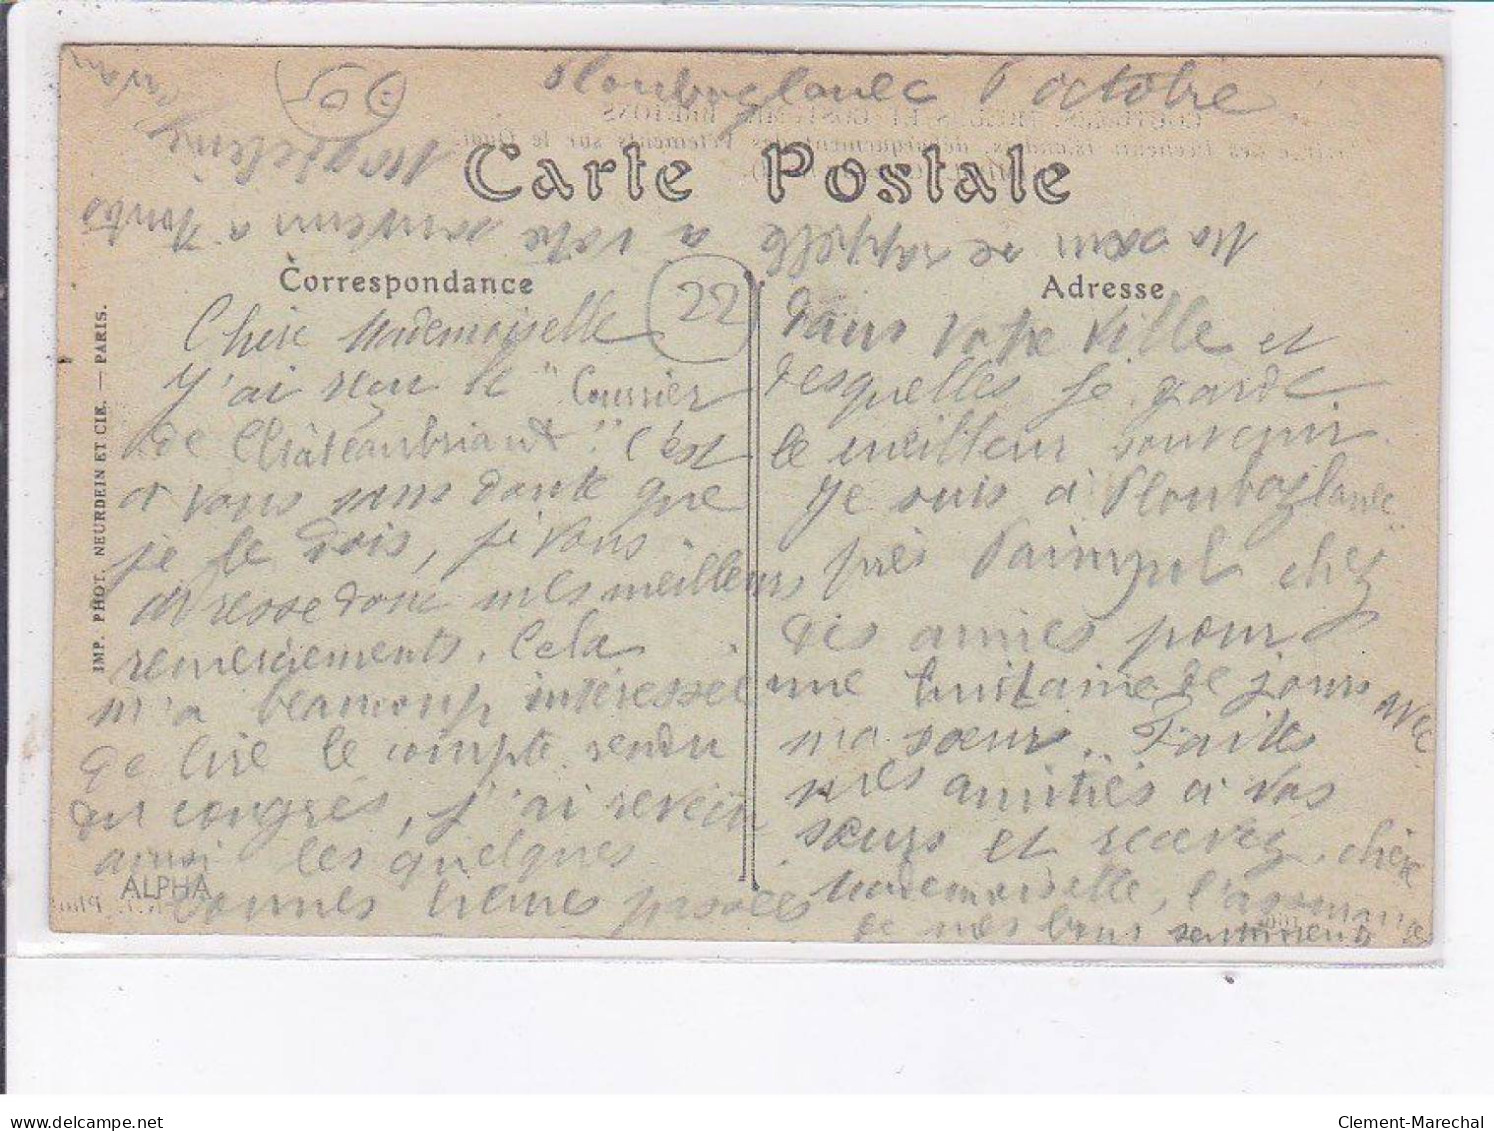 Ploubazlanec 6 octobre
Carte Postale
Correspondance
Adresse
22
Chère Mademoiselle
J'ai reçu le "Courrier
de Châteaubriant". C'est
à vous sans doute que
je le dois, je vous
adresse donc mes meilleurs
remerciements. Cela
m'a beaucoup intéressée
de lire le compte-rendu
du congrès, j'ai revécu
ainsi les quelques
bonnes heures passées
dans votre ville et
desquelles je garde
le meilleur souvenir.
Je suis à Ploubazlanec
près Paimpol chez
des amies pour
une huitaine de jours avec
ma sœur. Faites
mes amitiés à vos
sœurs et recevez, chère
Mademoiselle, l'assurance
de mes bons sentiments
Ma sœur se rappelle
à votre souvenir à toutes
IMP. PHOT. NEURDEIN ET CIE. — PARIS.
ALPHA
delcampe.net
Clement-Marechal